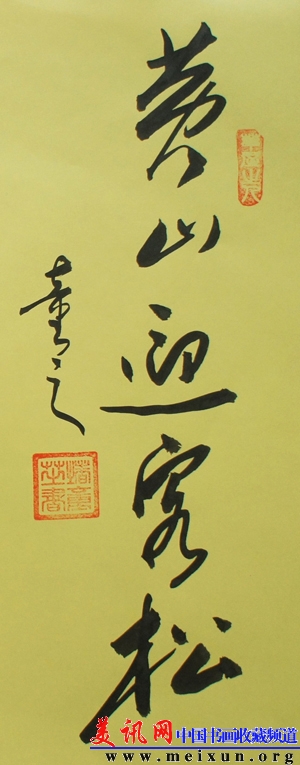 黄山迎客松
美讯网 中国书画收藏频道
www.meixun.org